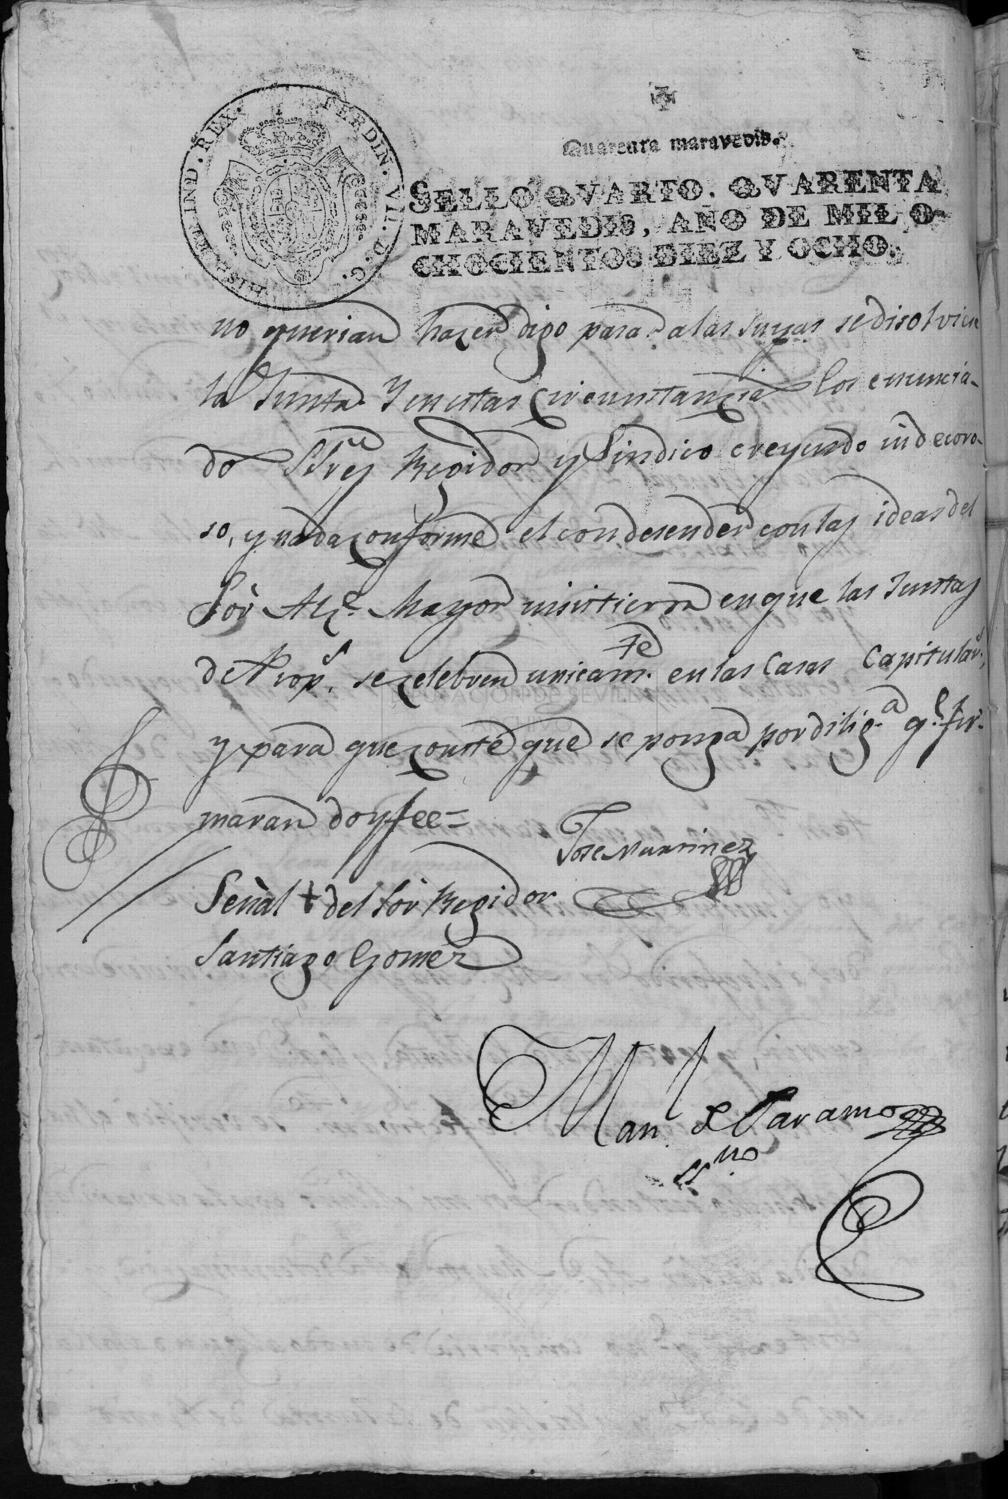 HISP. ET IND. REX. FERDIN. VII. D. G.
Quarenta maravedis.
SELLO QVARTO. QVARENTA
MARAVEDIS, AÑO DE MIL O-
CHOCIENTOS DIEZ Y OCHO.
no querian hazer digo pasar a las suyas se disolvien
la Junta. Y en estas circunstanzias los enuncia-
do Sres Regidor y Sindico creyendo indecoro-
so, y nada conforme el condesender con las ideas del
Sor Alce. Mayor insistieron en que las Juntas
de Props. se zelebren unicamte. en las Casas Capitulars,
y para que conste que se ponga por diliga. qe. fir-
maran doy fee=
Jose Martinez
Señal + del Sor Regidor
Santiago Gomez
Manl. de Paramo
SSno